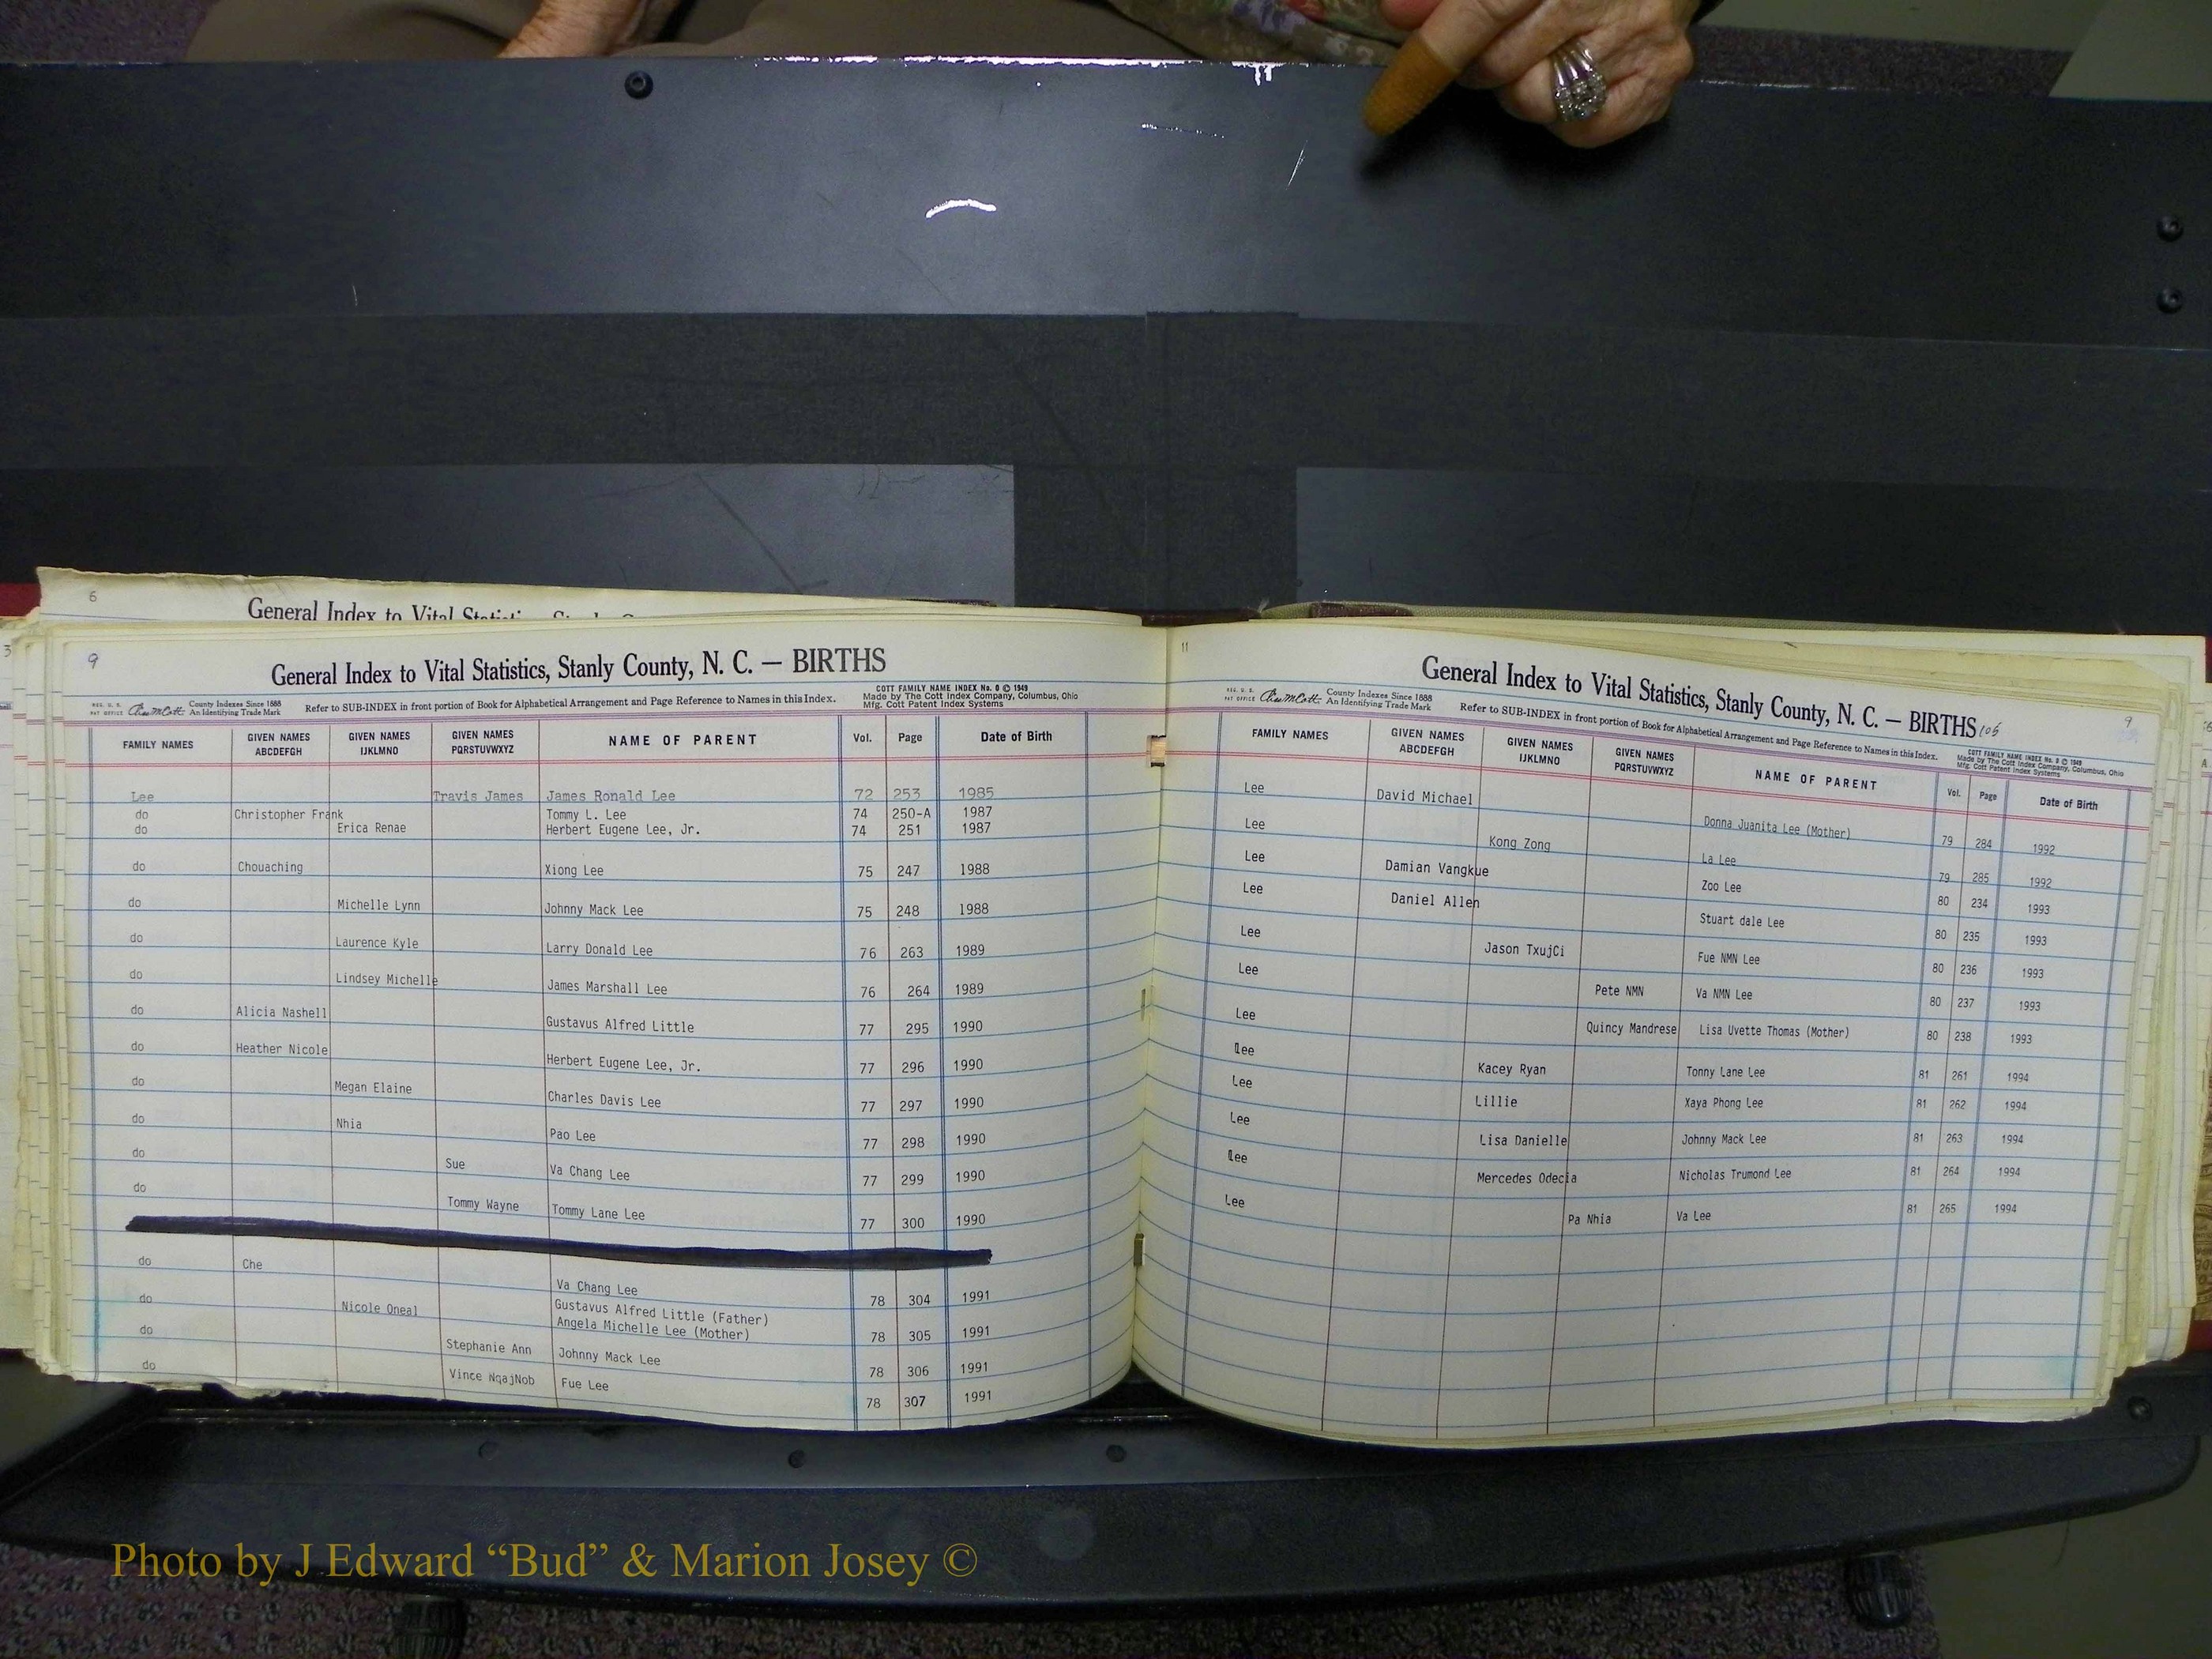 6
General Index to Vital Statistics, Stanly Co
3
9
General Index to Vital Statistics, Stanly County, N. C. — BIRTHS
REG. U. S. PAT OFFICE County Indexes Since 1888 An Identifying Trade Mark
Refer to SUB-INDEX in front portion of Book for Alphabetical Arrangement and Page Reference to Names in this Index.
COTT FAMILY NAME INDEX No. 0 © 1949
Made by The Cott Index Company, Columbus, Ohio
Mfg. Cott Patent Index Systems
FAMILY NAMES GIVEN NAMES ABCDEFGH GIVEN NAMES IJKLMNO GIVEN NAMES PQRSTUVWXYZ NAME OF PARENT Vol. Page Date of Birth
Lee Travis James James Ronald Lee 72 253 1985
do Christopher Frank Tommy L. Lee 74 250-A 1987
do Erica Renae Herbert Eugene Lee, Jr. 74 251 1987
do Chouaching Xiong Lee 75 247 1988
do Michelle Lynn Johnny Mack Lee 75 248 1988
do Laurence Kyle Larry Donald Lee 76 263 1989
do Lindsey Michelle James Marshall Lee 76 264 1989
do Alicia Nashell Gustavus Alfred Little 77 295 1990
do Heather Nicole Herbert Eugene Lee, Jr. 77 296 1990
do Megan Elaine Charles Davis Lee 77 297 1990
do Nhia Pao Lee 77 298 1990
do Sue Va Chang Lee 77 299 1990
do Tommy Wayne Tommy Lane Lee 77 300 1990
do Che Va Chang Lee 78 304 1991
do Nicole Oneal Gustavus Alfred Little (Father)
Angela Michelle Lee (Mother) 78 305 1991
do Stephanie Ann Johnny Mack Lee 78 306 1991
do Vince NqajNob Fue Lee 78 307 1991
11
General Index to Vital Statistics, Stanly County, N. C. — BIRTHS 105
9
REG. U. S. PAT OFFICE County Indexes Since 1888 An Identifying Trade Mark
Refer to SUB-INDEX in front portion of Book for Alphabetical Arrangement and Page Reference to Names in this Index.
COTT FAMILY NAME INDEX No. 0 © 1949
Made by The Cott Index Company, Columbus, Ohio
Mfg. Cott Patent Index Systems
FAMILY NAMES GIVEN NAMES ABCDEFGH GIVEN NAMES IJKLMNO GIVEN NAMES PQRSTUVWXYZ NAME OF PARENT Vol. Page Date of Birth
Lee David Michael Donna Juanita Lee (Mother) 79 284 1992
Lee Kong Zong La Lee 79 285 1992
Lee Damian Vangkue Zoo Lee 80 234 1993
Lee Daniel Allen Stuart dale Lee 80 235 1993
Lee Jason TxujCi Fue NMN Lee 80 236 1993
Lee Pete NMN Va NMN Lee 80 237 1993
Lee Quincy Mandrese Lisa Uvette Thomas (Mother) 80 238 1993
Lee Kacey Ryan Tonny Lane Lee 81 261 1994
Lee Lillie Xaya Phong Lee 81 262 1994
Lee Lisa Danielle Johnny Mack Lee 81 263 1994
Lee Mercedes Odecia Nicholas Trumond Lee 81 264 1994
Lee Pa Nhia Va Lee 81 265 1994
Photo by J Edward “Bud” & Marion Josey ©